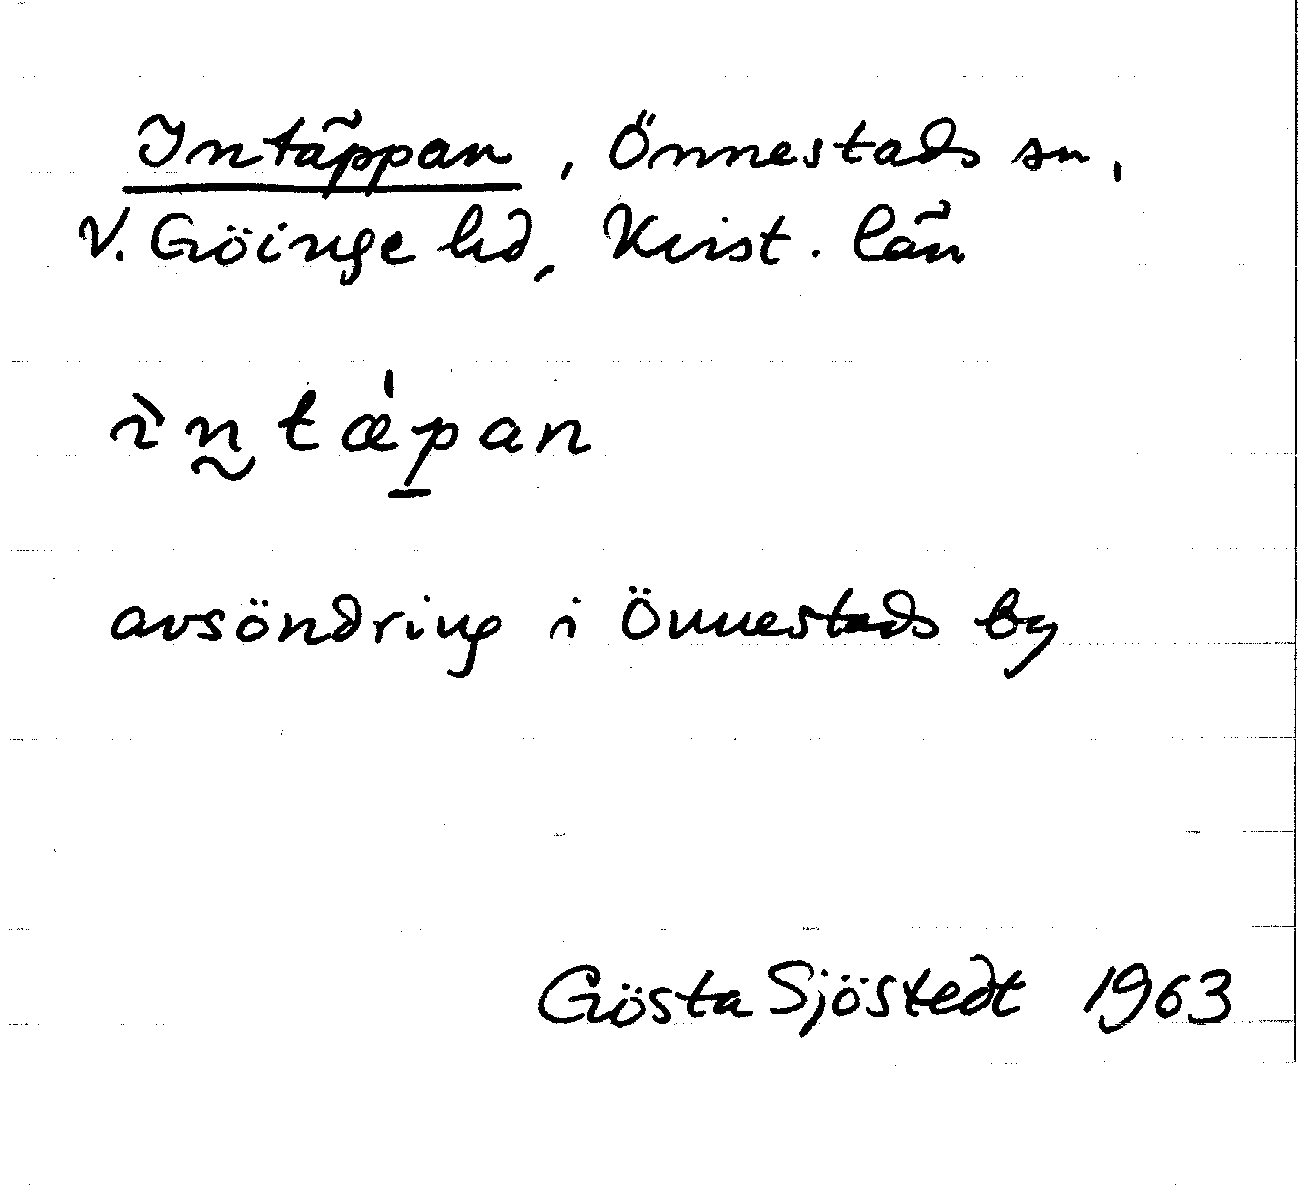 Intäppan, Önnestads sn,
V. Göinge hd, Krist. län
ìn̰tæ̍p̱an
avsöndring i Önnestads by
Gösta Sjöstedt 1963